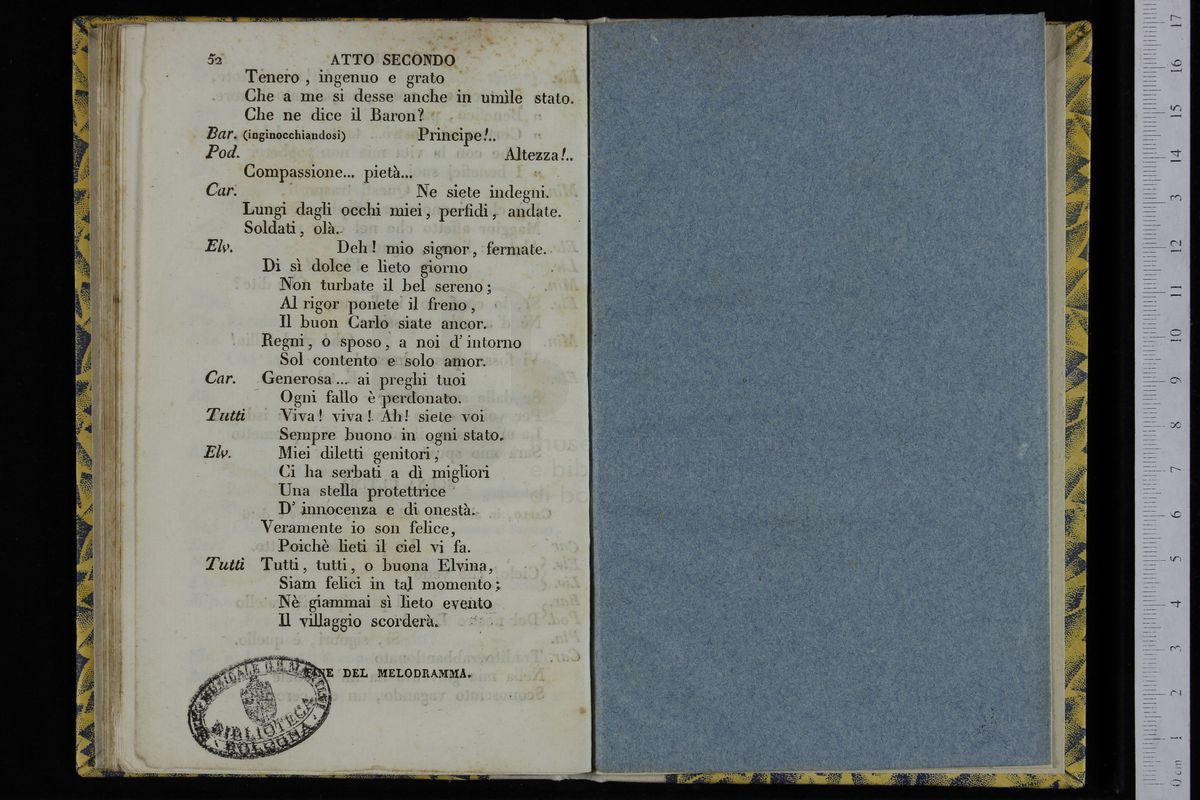 52 ATTO SECONDO
Tenero , ingenuo e grato
Che a me si desse anche in umìle stato.
Che ne dice il Baron?
Bar. (inginocchiandosi) Principe!..
Pod. Altezza!..
Compassione... pietà...
Car. Ne siete indegni.
Lungi dagli occhi miei, perfidi, andate.
Soldati, olà.
Elv. Deh! mio signor, fermate.
Di sì dolce e lieto giorno
Non turbate il bel sereno;
Al rigor ponete il freno,
Il buon Carlo siate ancor.
Regni, o sposo, a noi d'intorno
Sol contento e solo amor.
Car. Generosa... ai preghi tuoi
Ogni fallo è perdonato.
Tutti Viva! viva! Ah! siete voi
Sempre buono in ogni stato.
Elv. Miei diletti genitori,
Ci ha serbati a dì migliori
Una stella protettrice
D'innocenza e di onestà.
Veramente io son felice,
Poichè lieti il ciel vi fa.
Tutti Tutti, tutti, o buona Elvina,
Siam felici in tal momento;
Nè giammai sì lieto evento
Il villaggio scorderà.
FINE DEL MELODRAMMA.
BIBLIOTECA
BOLOGNA
0 cm 1 2 3 4 5 6 7 8 9 10 11 12 13 14 15 16 17